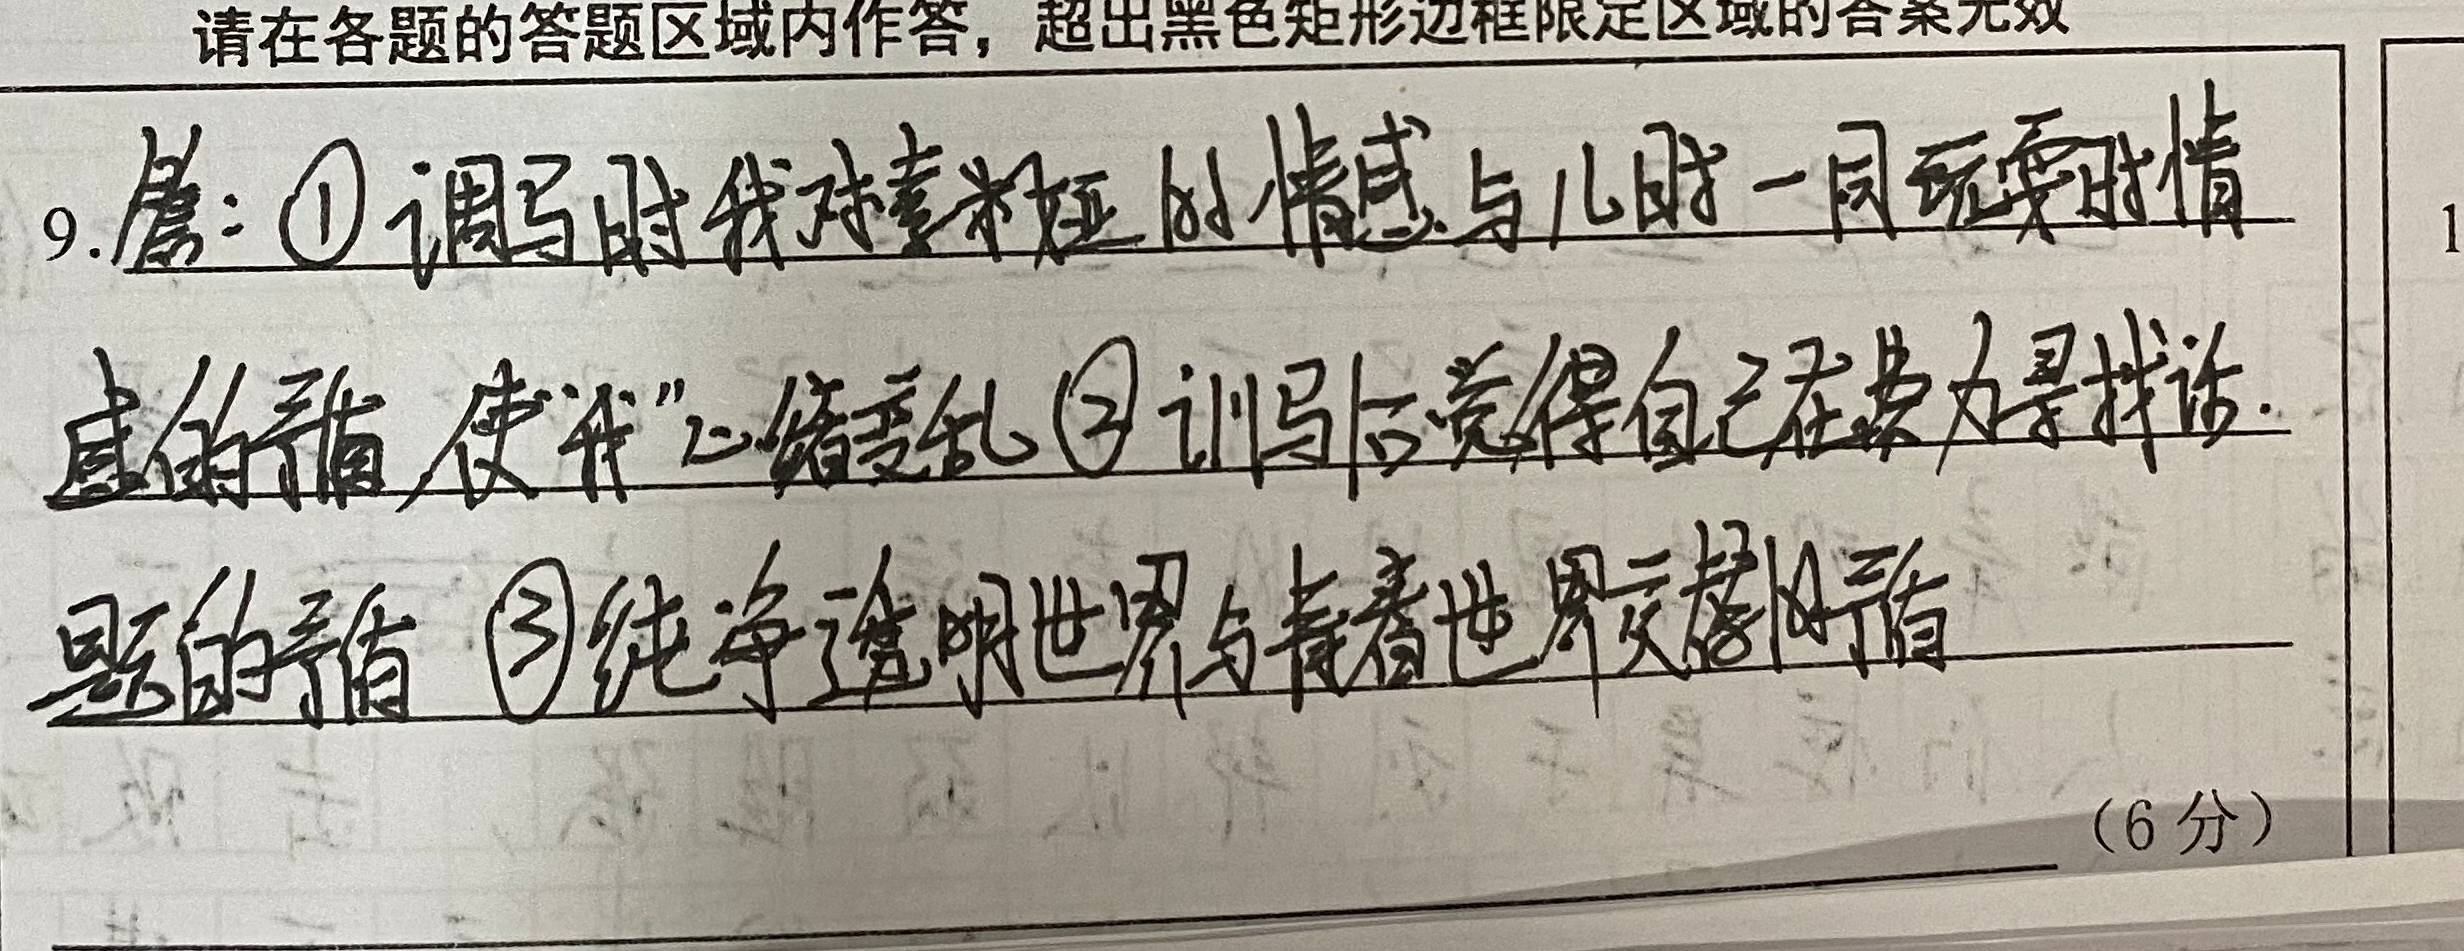 请在各题的答题区域内作答，超出黑色矩形边框限定区域的答案无效
9.答：①调马时我对索米娅的情感与儿时一同玩耍时情
感的矛盾，使“我”心绪变乱②训马后觉得自己在费力寻找话
题的矛盾 ③纯净透明世界与青春世界交替的矛盾
（6分）
1